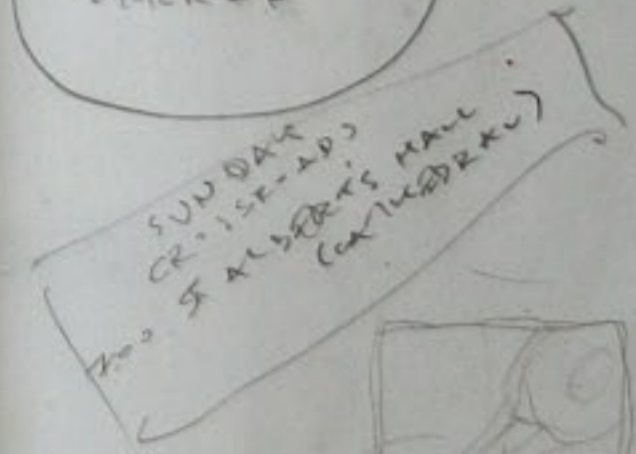 SUNDAY
CROSSROADS
7.00 ST ALBERT'S HALL
(CATHEDRAL)